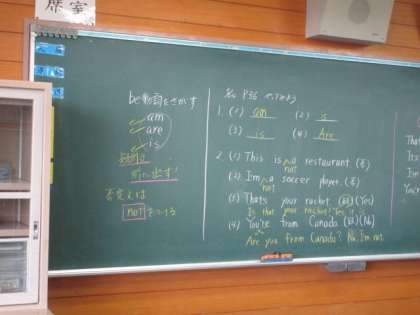 席室
be動詞をさがす
am
are
is
前に出す!
否定文は
notをつける
P36 やってみよう
1. (1) am (2) is
(3) is (4) Are
2. (1) This is a restaurant (否)
not
(2) I'm a soccer player. (否)
not
(3) Thats your racket. (疑) (Yes)
Is that your racket? Yes it is
(4) You're from Canada (疑) (No)
Are you from Canada? No I'm not.
That
Its